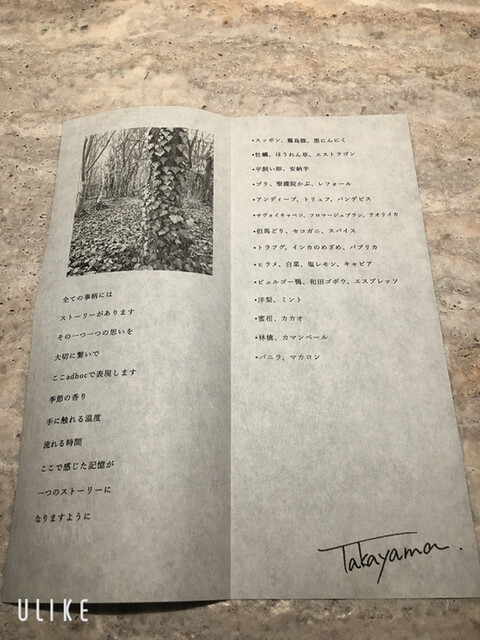 全ての事柄には
ストーリーがあります
その一つ一つの思いを
大切に繋いで
ここadhocで表現します
季節の香り
手に触れる温度
流れる時間
ここで感じた記憶が
一つのストーリーに
なりますように
•スッポン、霧島豚、黒にんにく
•牡蠣、ほうれん草、エストラゴン
•平飼い卵、安納芋
•ブリ、聖護院かぶ、レフォール
•アンディーブ、トリュフ、パンデピス
•サヴォイキャベツ、フロマージュブラン、アオリイカ
•但馬どり、セコガニ、スパイス
•トラフグ、インカのめざめ、パプリカ
•ヒラメ、白菜、塩レモン、キャビア
•ビュルゴー鴨、和田ゴボウ、エスプレッソ
•洋梨、ミント
•蜜柑、カカオ
•林檎、カマンベール
•バニラ、マカロン
Takayama.
ULIKE